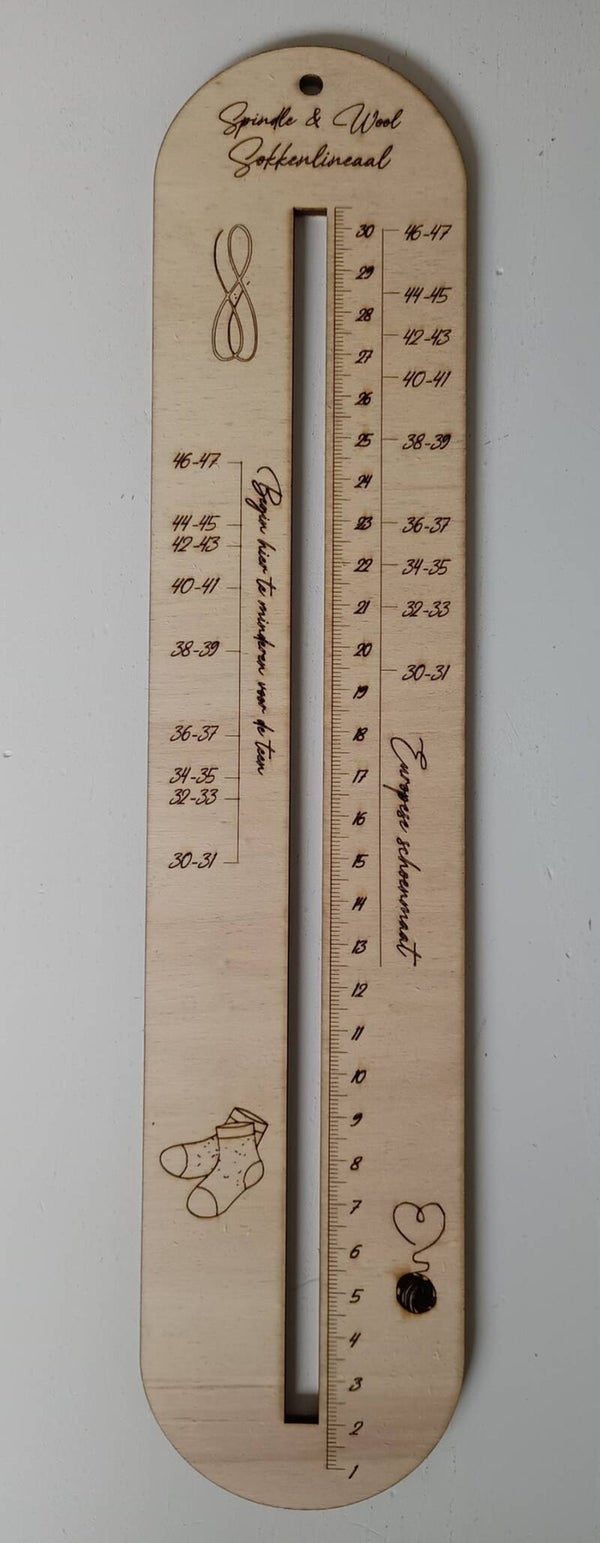 Spindle & Wool
Sokkenlineaal
46-47
44-45
42-43
40-41
38-39
36-37
34-35
32-33
30-31
Begin hier te minderen voor de teen
30
29
28
27
26
25
24
23
22
21
20
19
18
17
16
15
14
13
12
11
10
9
8
7
6
5
4
3
2
1
46-47
44-45
42-43
40-41
38-39
36-37
34-35
32-33
30-31
Europese schoenmaat